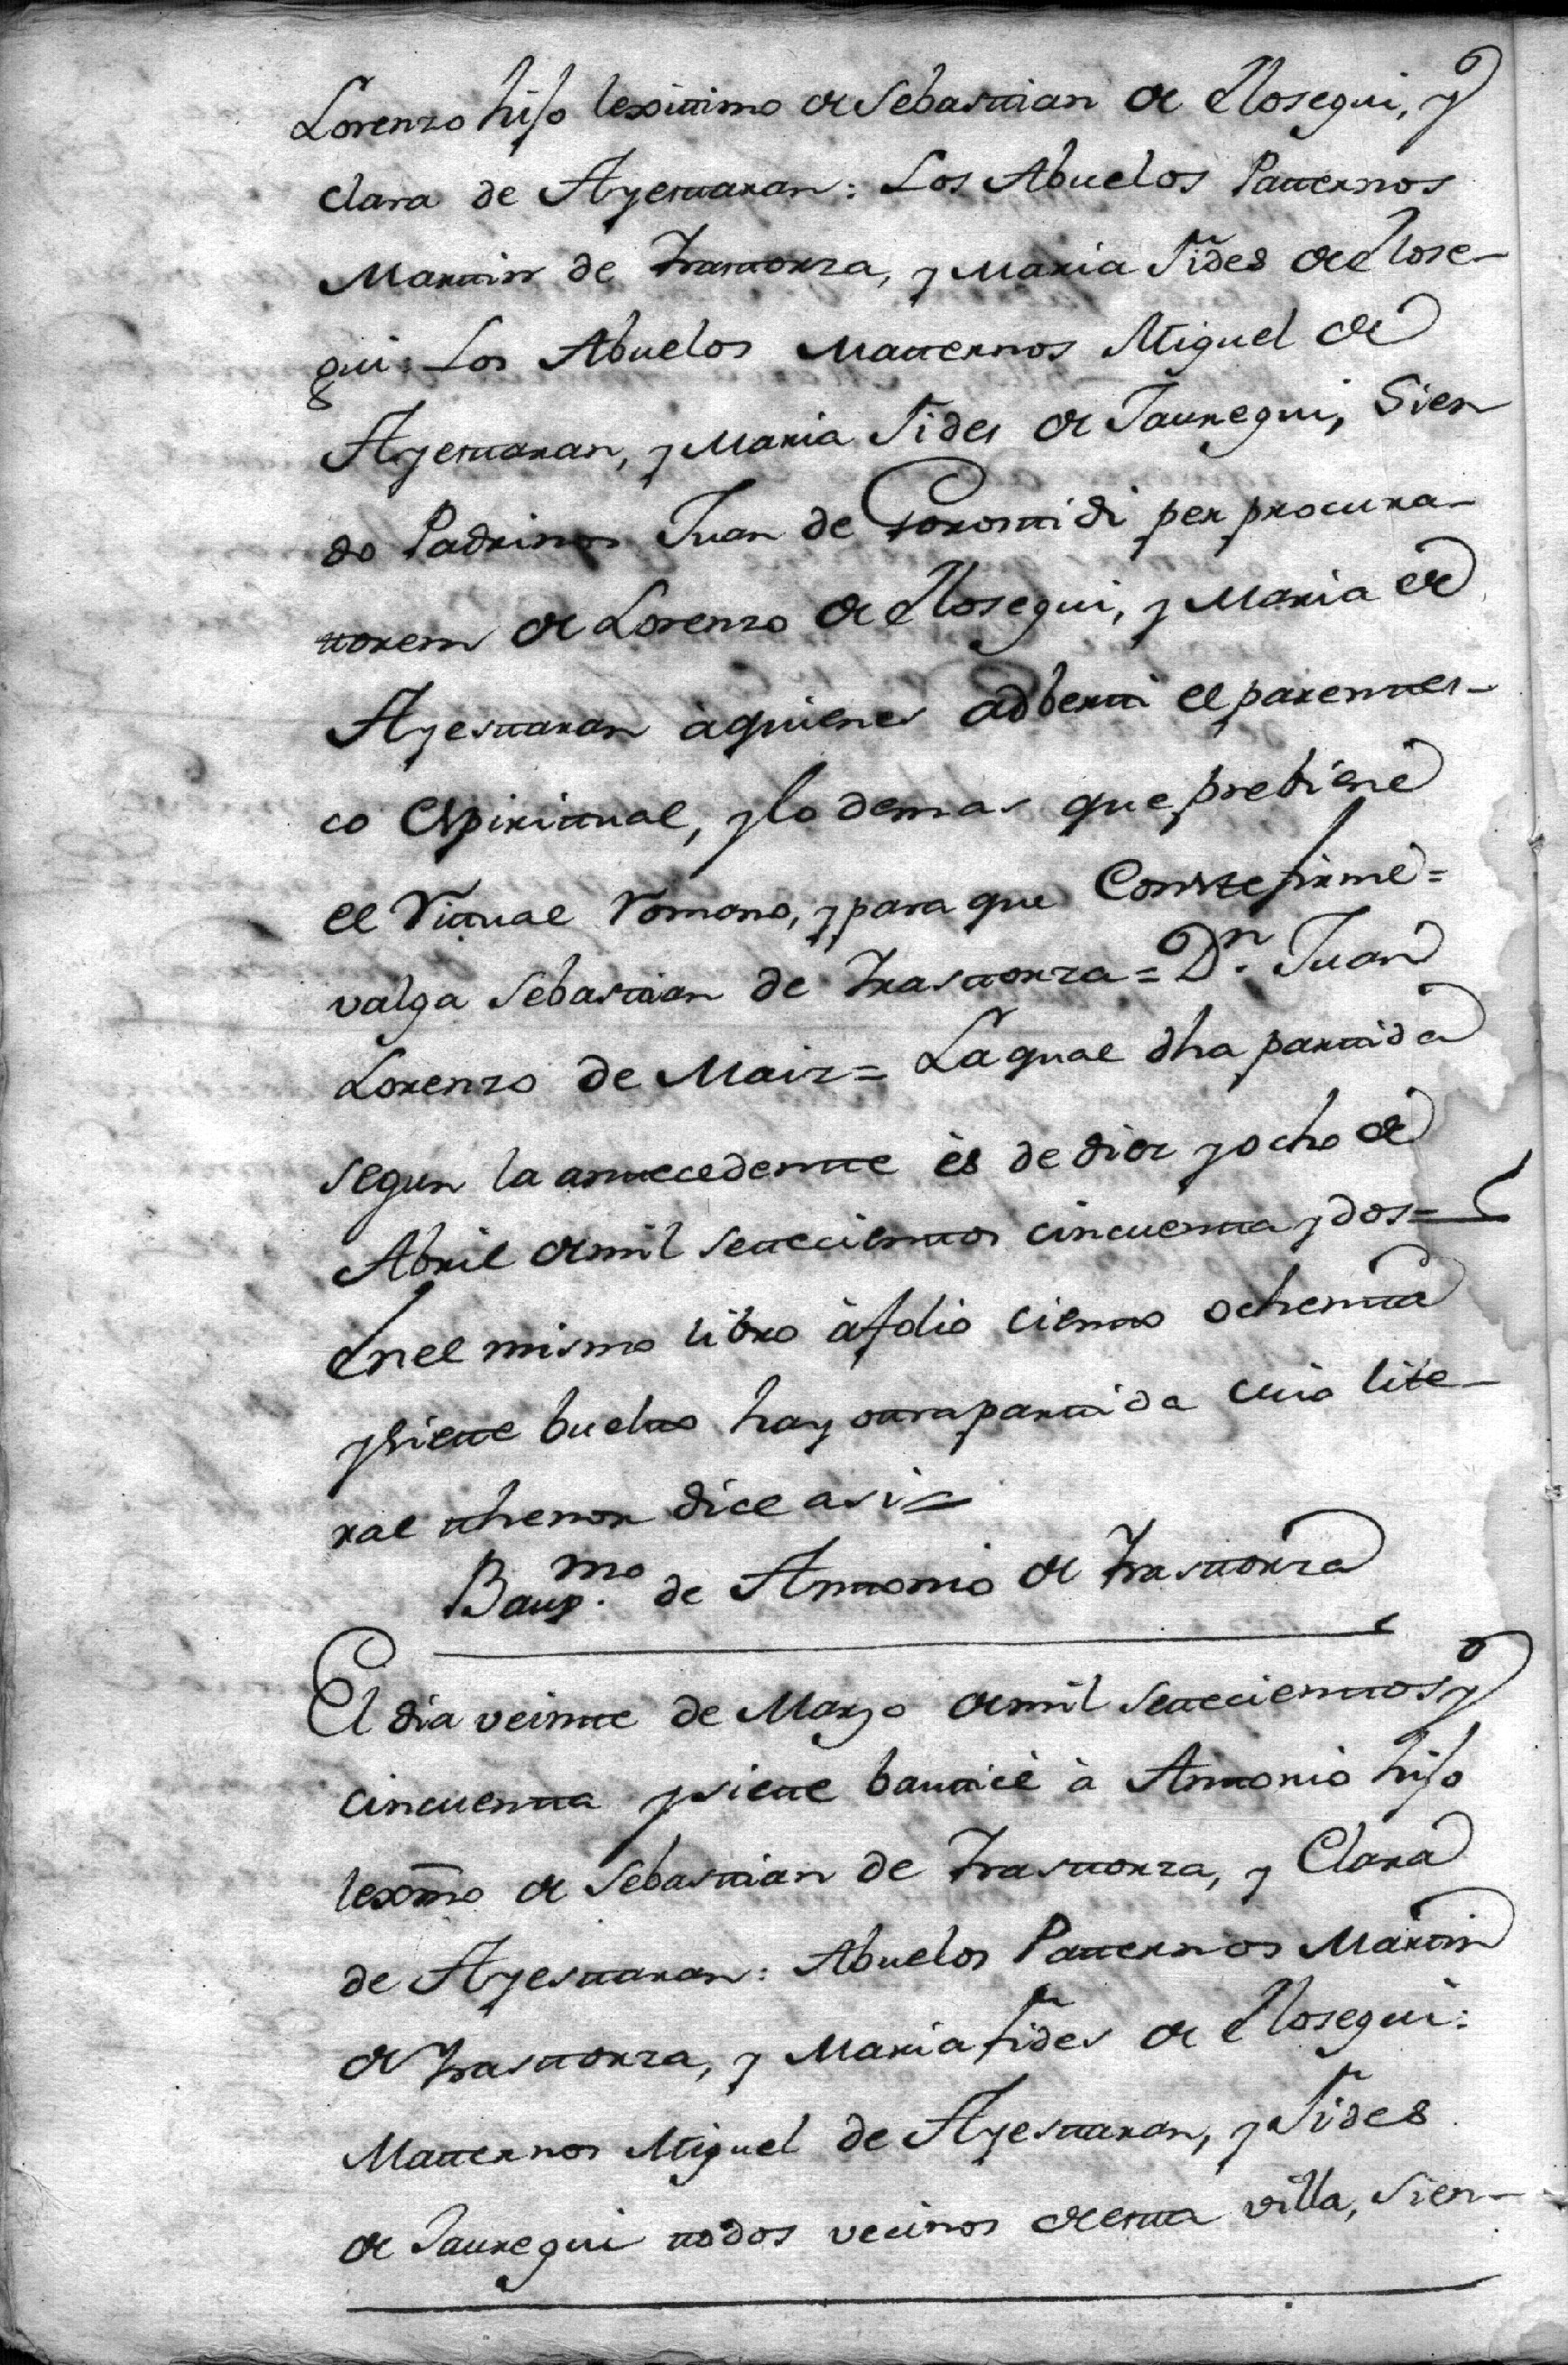 Lorenzo hijo lexitimo de Sebastian de Elosegui, y
clara de Ayestaran: Los Abuelos Paternos
Martin de Irastorza, y Maria Fides de Elose-
gui: Los Abuelos Maternos Miguel de
Ayestaran, y Maria Fides de Jauregui, Sien
do Padrinos Juan de Goromidi per procura-
torem de Lorenzo de Elosegui, y Maria de
Ayestaran à quienes adberti el parentes-
co espiritual, y lo demas que prebiene
el Ritual Romano, y para que Conste firmé=
valga Sebastian de Irastorza= Dn. Juan
Lorenzo de Maiz= La qual dha partida
segun la antecedente ès de diez y ocho de
Abril de mil setecientos cincuenta y dos=
En el mismo libro à folio ciento ochenta
y siete buelto hay otra partida cuio lite-
ral thenor dice asi=
Baup.mo de Antonio de Irastorza
El dia veinte de Marzo de mil setecientos y
cincuenta y siete bauticè à Antonio hijo
lexmo de Sebastian de Irastorza, y Clara
de Ayestaran: Abuelos Paternos Martin
de Irastorza, y Maria Fides de Elosegui:
Maternos Miguel de Ayestaran, y Fides
de Jauregui todos vecinos de esta villa, Sien-